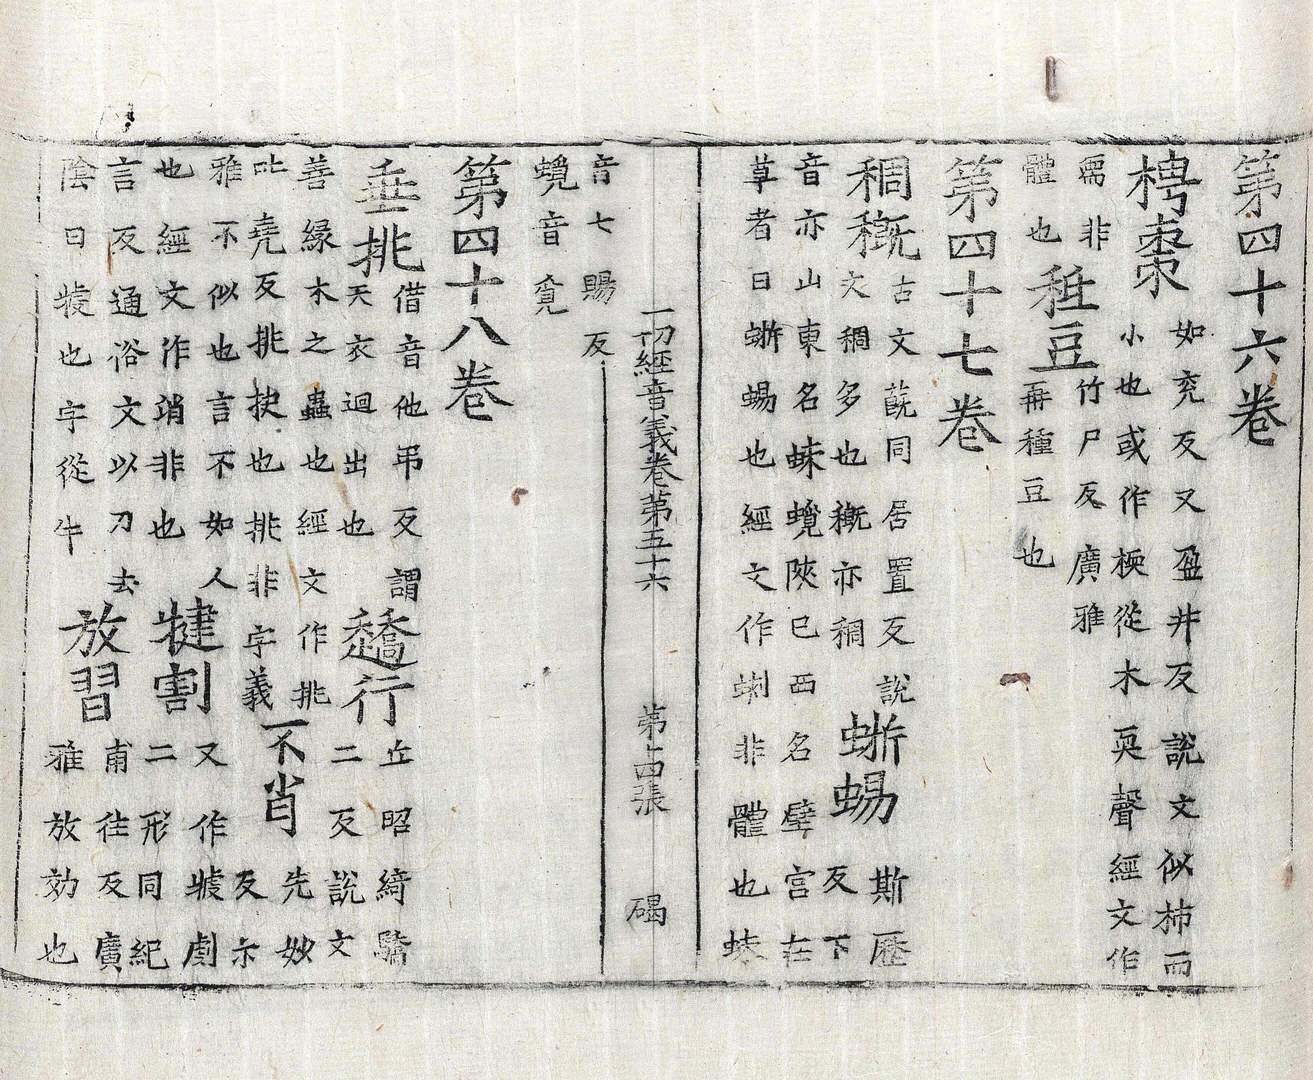 第四十六卷
梬棗如兖反又盈井反說文似柿而
小也或作㮕從木耎聲經文作
需非
體也稚豆竹尸反廣雅
再種豆也
第四十七卷
稠穊古文蔇同居置反說
文稠多也穊亦稠蜥蜴斯歷
反下
音亦山東名蛷螑陝已西名壁宮在
草者曰蜥蜴也經文作蜊非體也蛷
一切經音義卷第五十六 第十四張 碣
音七賜反
螑音覓
第四十八卷
垂挑借音他弔反謂
天衣迴出也趫行丘昭綺驕
二反說文
善緣木之蟲也經文作挑
吡堯反挑抉也挑非字義不肖先妙
反尓
雅不似也言不如人
也經文作逍非也犍割又作㹇劇
二形同紀
言反通俗文以刀去
陰曰㹇也字從牛放習甫往反廣
雅放効也